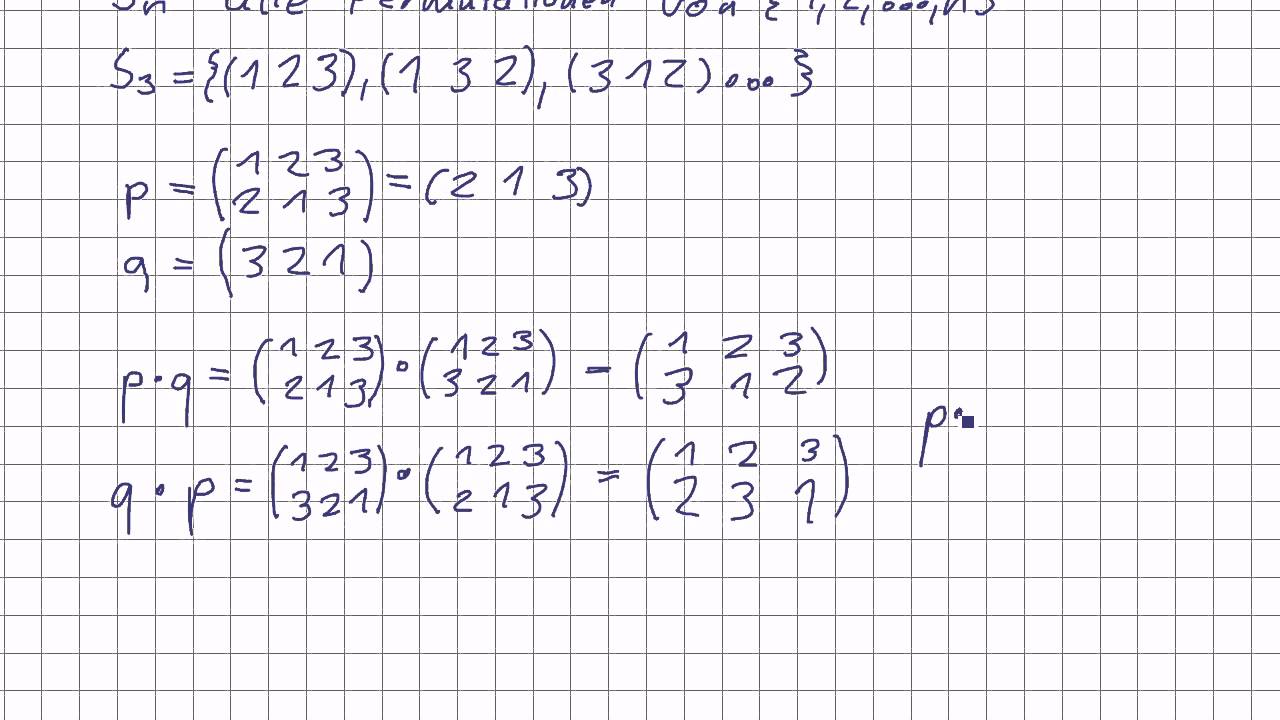 Sn alle Permutationen von {1,2,...,n}
S₃ = {(1 2 3), (1 3 2), (3 1 2) ... }
p = (1 2 3
2 1 3) = (2 1 3)
q = (3 2 1)
p · q = (1 2 3 · (1 2 3 = (1 2 3
2 1 3) 3 2 1) 3 1 2)
p·
q · p = (1 2 3 · (1 2 3 = (1 2 3
3 2 1) 2 1 3) 2 3 1)